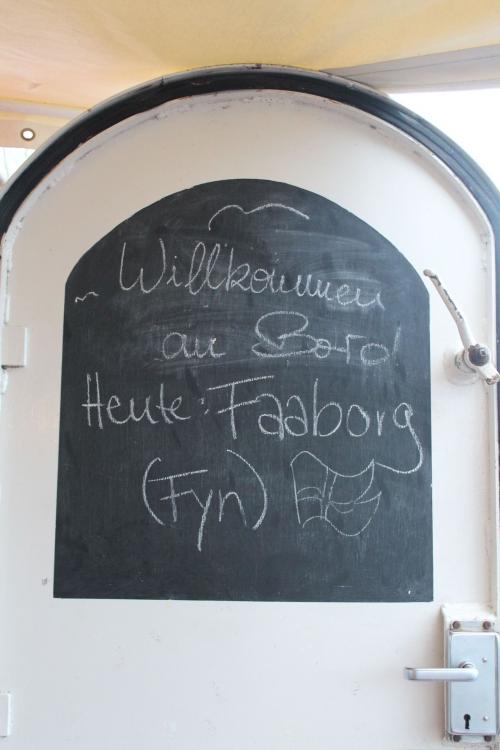 Willkommen
an Bord
Heute: Faaborg
(Fyn)